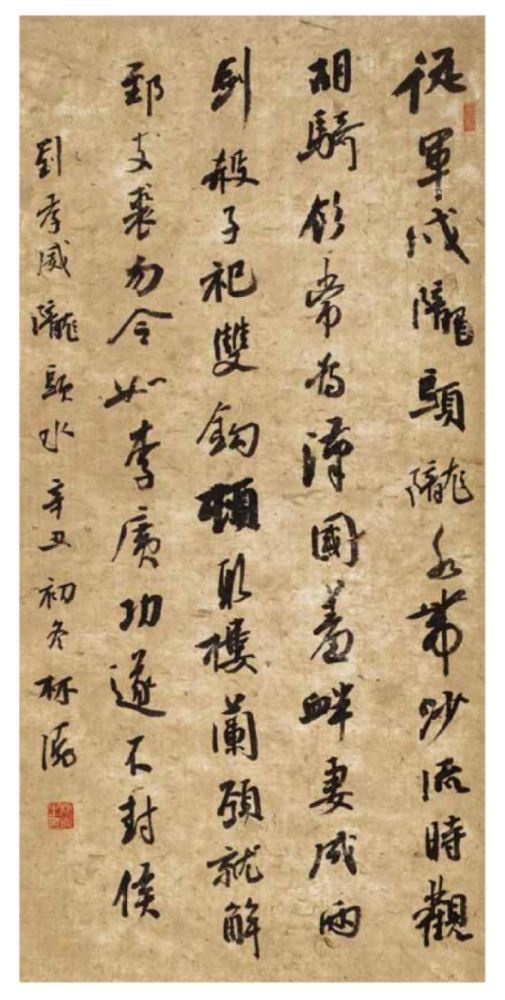 從軍戍隴頭隴水帶沙流時觀
胡騎飲常為漢國羞衅妻成兩
劍殺子祀雙鉤頓取樓蘭頸就解
郅支裘勿令如李廣功遂不封侯
劉孝威隴頭水辛丑初冬林